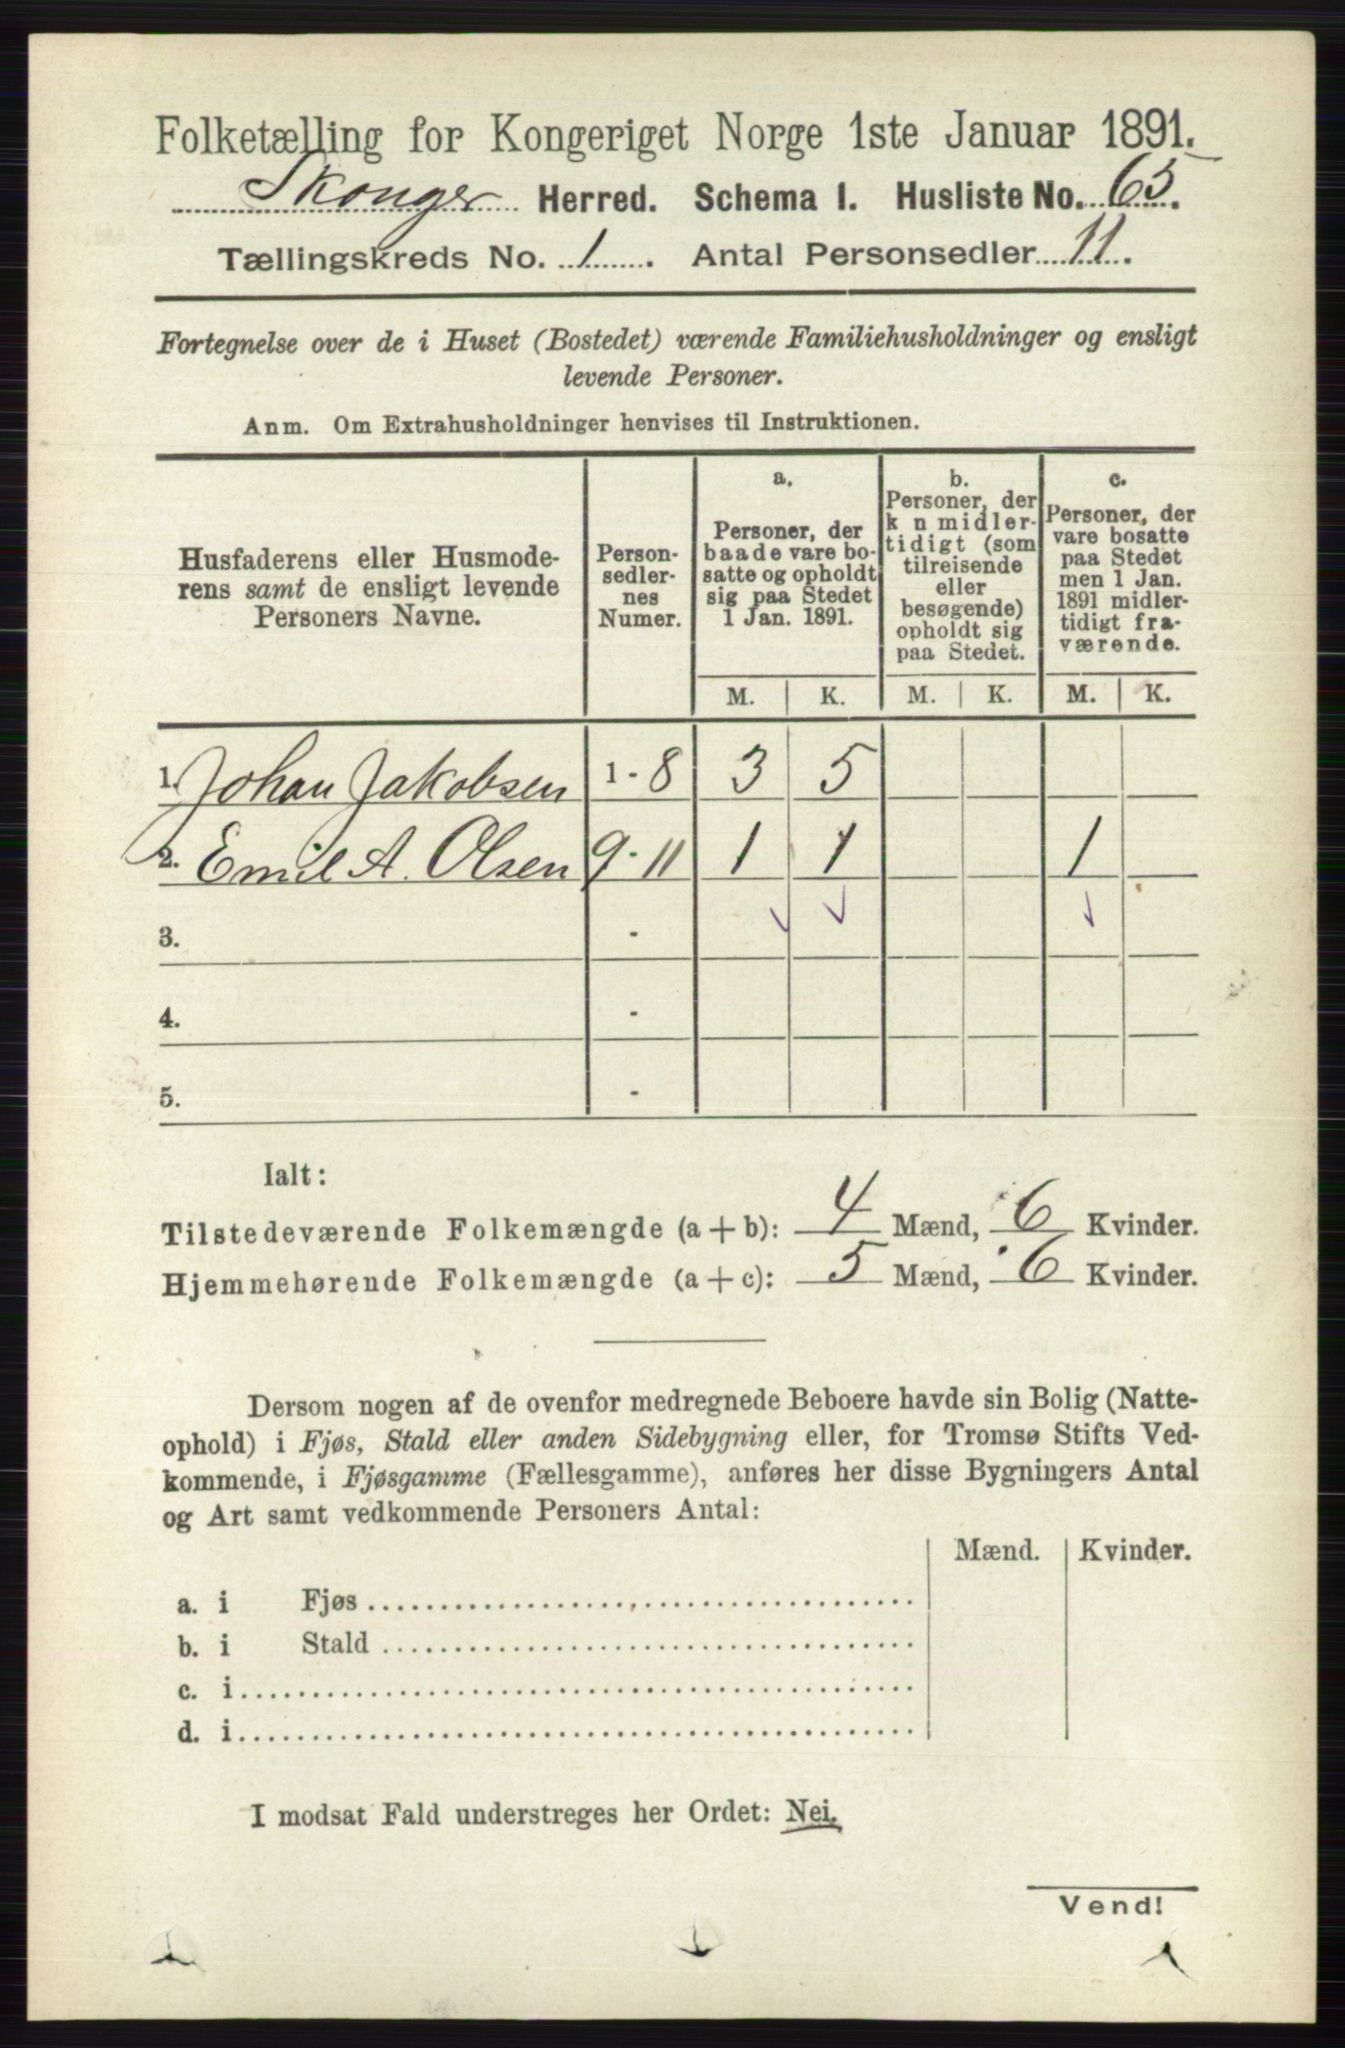 Folketælling for Kongeriget Norge 1ste Januar 1891.
Skoger Herred. Schema I. Husliste No. 65.
Tællingskreds No. 1. Antal Personsedler 11.
Fortegnelse over de i Huset (Bostedet) værende Familiehusholdninger og ensligt
levende Personer.
Anm. Om Extrahusholdninger henvises til Instruktionen.
Husfaderens eller Husmode-
rens samt de ensligt levende
Personers Navne.
Person-
sedler-
nes
Numer.
a.
Personer, der
baade vare bo-
satte og opholdt
sig paa Stedet
1 Jan. 1891.
b.
Personer, der
k n midler-
tidigt (som
tilreisende
eller
besøgende)
opholdt sig
paa Stedet.
c.
Personer, der
vare bosatte
paa Stedet
men 1 Jan.
1891 midler-
tidigt fra-
værende.
M. K. M. K. M. K.
1. Johan Jakobsen 1 - 8 3 5
2. Emil A. Olsen 9 - 11 1 1 1
3. -
4. -
5. -
Ialt:
Tilstedeværende Folkemængde (a + b): 4 Mænd, 6 Kvinder.
Hjemmehørende Folkemængde (a + c): 5 Mænd, 6 Kvinder.
Dersom nogen af de ovenfor medregnede Beboere havde sin Bolig (Natte-
ophold) i Fjøs, Stald eller anden Sidebygning eller, for Tromsø Stifts Ved-
kommende, i Fjøsgamme (Fællesgamme), anføres her disse Bygningers Antal
og Art samt vedkommende Personers Antal:
Mænd. Kvinder.
a. i Fjøs
b. i Stald
c. i
d. i
I modsat Fald understreges her Ordet: Nei.
Vend!